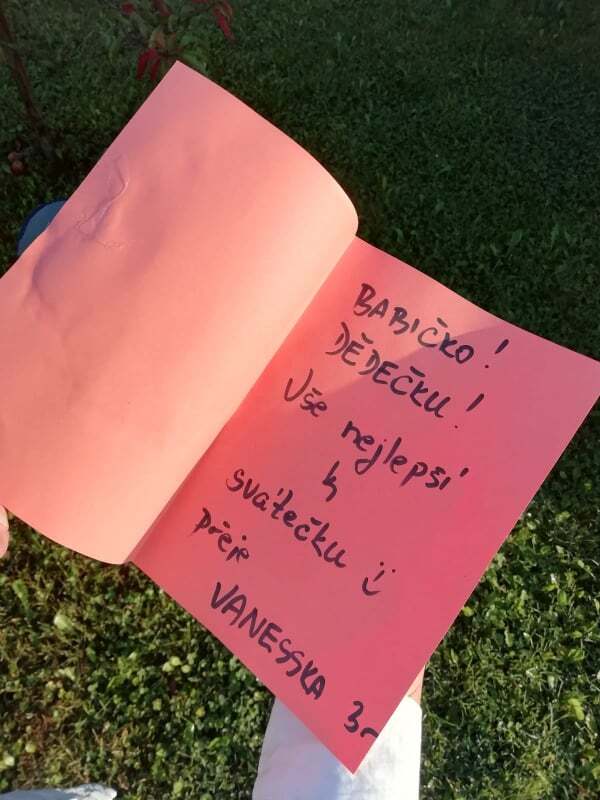 BABIČKO!
DĚDEČKU!
Vše nejlepší
k
svátečku :)
přeje
VANESSKA 3r